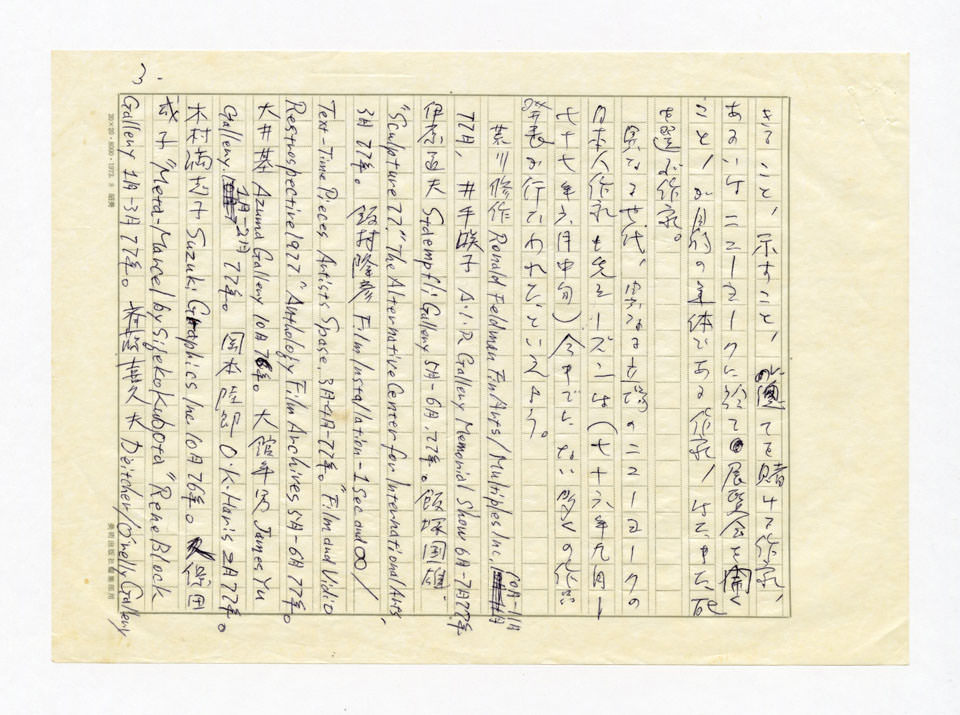 きること、示すこと、に全てを賭ける作家、
あるいはニューヨークに於て展覧会を開く
こと/が目的の全体である作家/はたまた死
を選ぶ作家。
異なる世代、異なる立場のニューヨークの
日本人作家も先シーズンは(七十六年九月ー
七十七年六月中旬)今までにない多くの作品
発表が行なわれたといえよう。
荒川修作 Ronald Feldman Fin Arts/Multiples Inc. 10月-11月
77月、 井手 子 A.I.R Gallery Memorial Show 6月-7月77年
伊原通夫 Stdempfli Gallery 5月-6月.77年。飯塚国雄
"Sculpture 77." The Alternative Center for International Arts,
3月 77年。 飯村隆彦 Film Installation-1 Sec and ∞/
Text-Time Pieces Artists Spase. 3月4月-77年。"Film and Vidio
Restrospective 1977" Anthology Film Archives 5月-6月77年。
大井基 Azuma Gallery 10月76年。 大舘年男 James Yu
Gallery. 1月-2月 77年。 岡本陸郎 O.K. Haris 2月77年。
木村 子 Suzuki Graphics Inc. 10月76年。久保田
成子 "Meta-Marcel by Sigeko Kubota" Rene Block
Gallery 1月-3月77年。 夫 Deitcher/O'nelly Gallery
3.
20×20・8000・1973.8 昭英
美術出版社編集部用